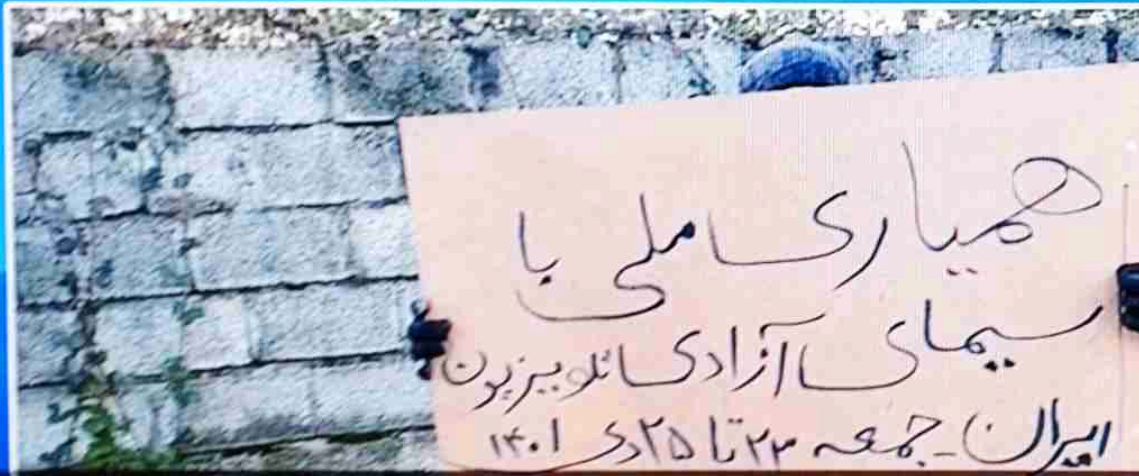 همیاری ملی با
سیمای آزادی تلویزیون
ایران - جمعه ۲۳ تا ۲۵ دی ۱۴۰۱